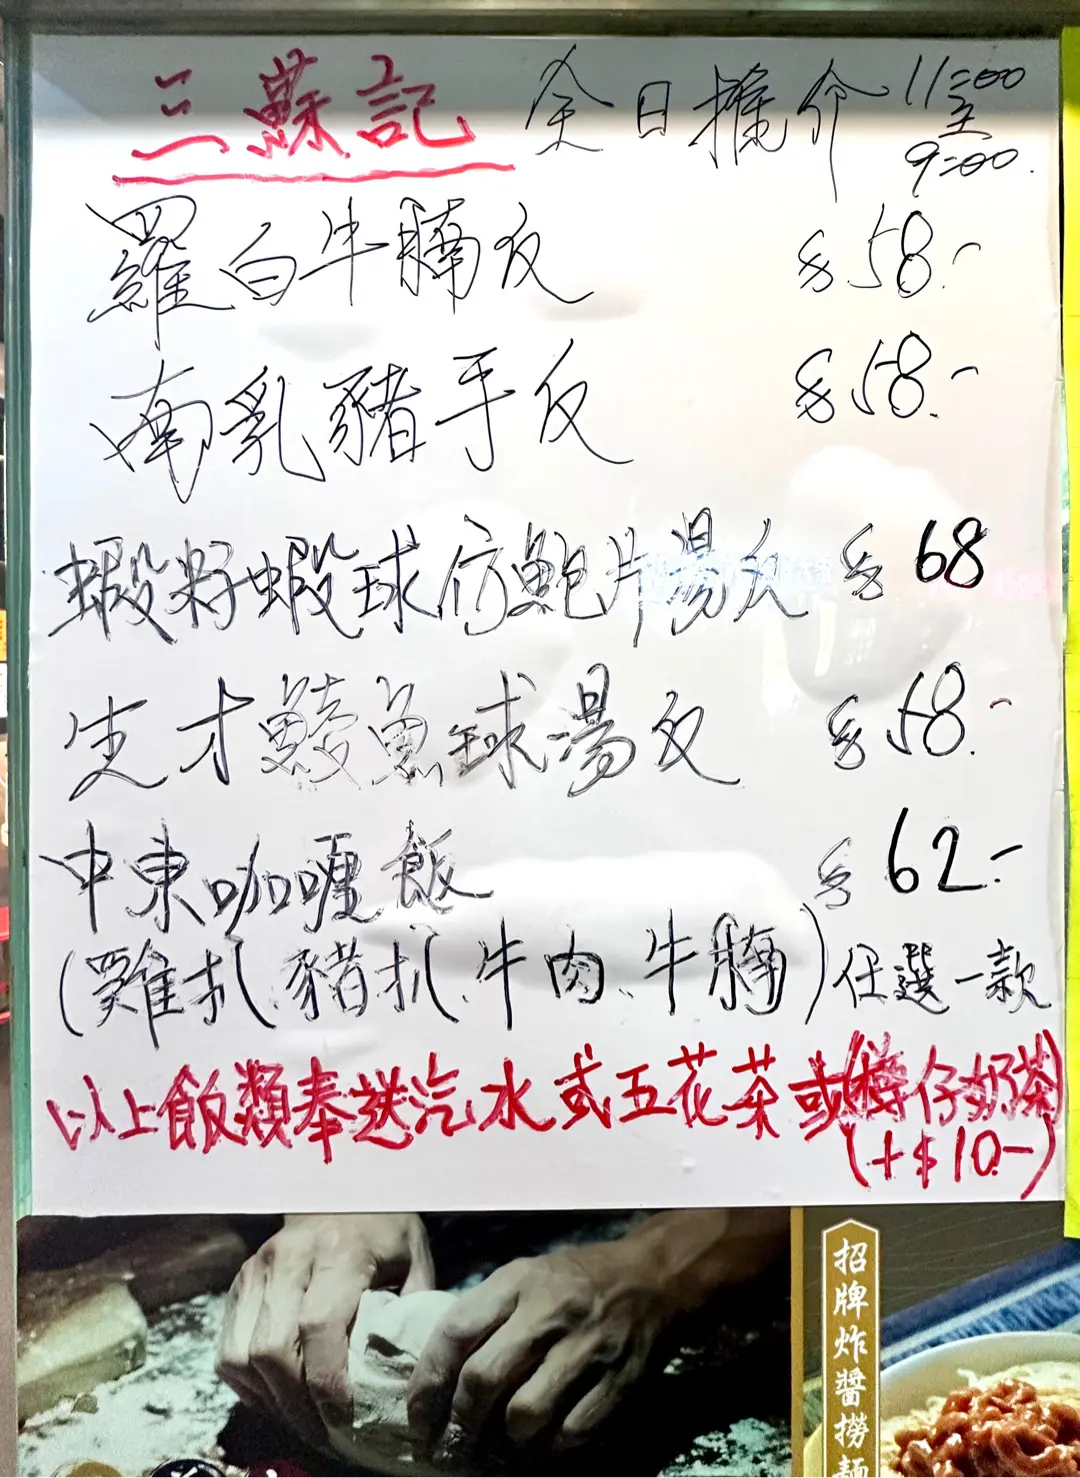 三蘇記 全日推介 11:00至9:00
羅白牛腩反 $58.-
南乳豬手反 $58.-
蝦籽蝦球仿鮑片湯反 $68
生才鯪魚球湯反 $58.-
中東咖喱飯 $62.-
(雞扒、豬扒、牛肉、牛腩)任選一款
以上飯類奉送汽水或五花茶或(樽仔奶茶)
(+$10.-)
招牌炸醬撈麵